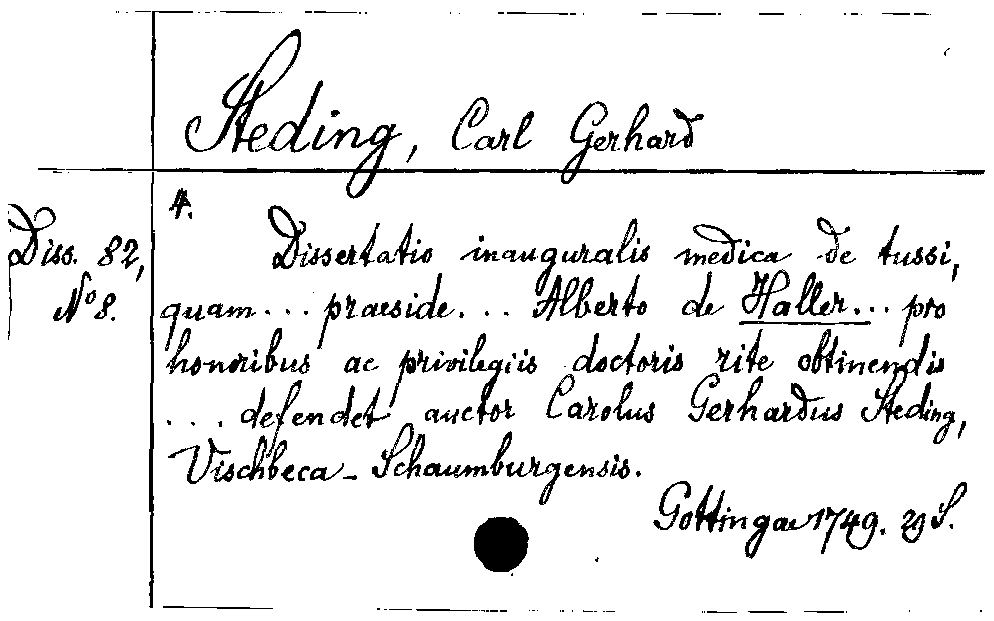 Steding, Carl Gerhard
4.
Diss. 82,
No 8.
Dissertatio inauguralis medica de tussi,
quam... praeside... Alberto de Haller... pro
honoribus ac privilegiis doctoris rite obtinendis
... defendet auctor Carolus Gerhardus Steding,
Vischbeca-Schaumburgensis.
Gottingae 1749. 29 S.